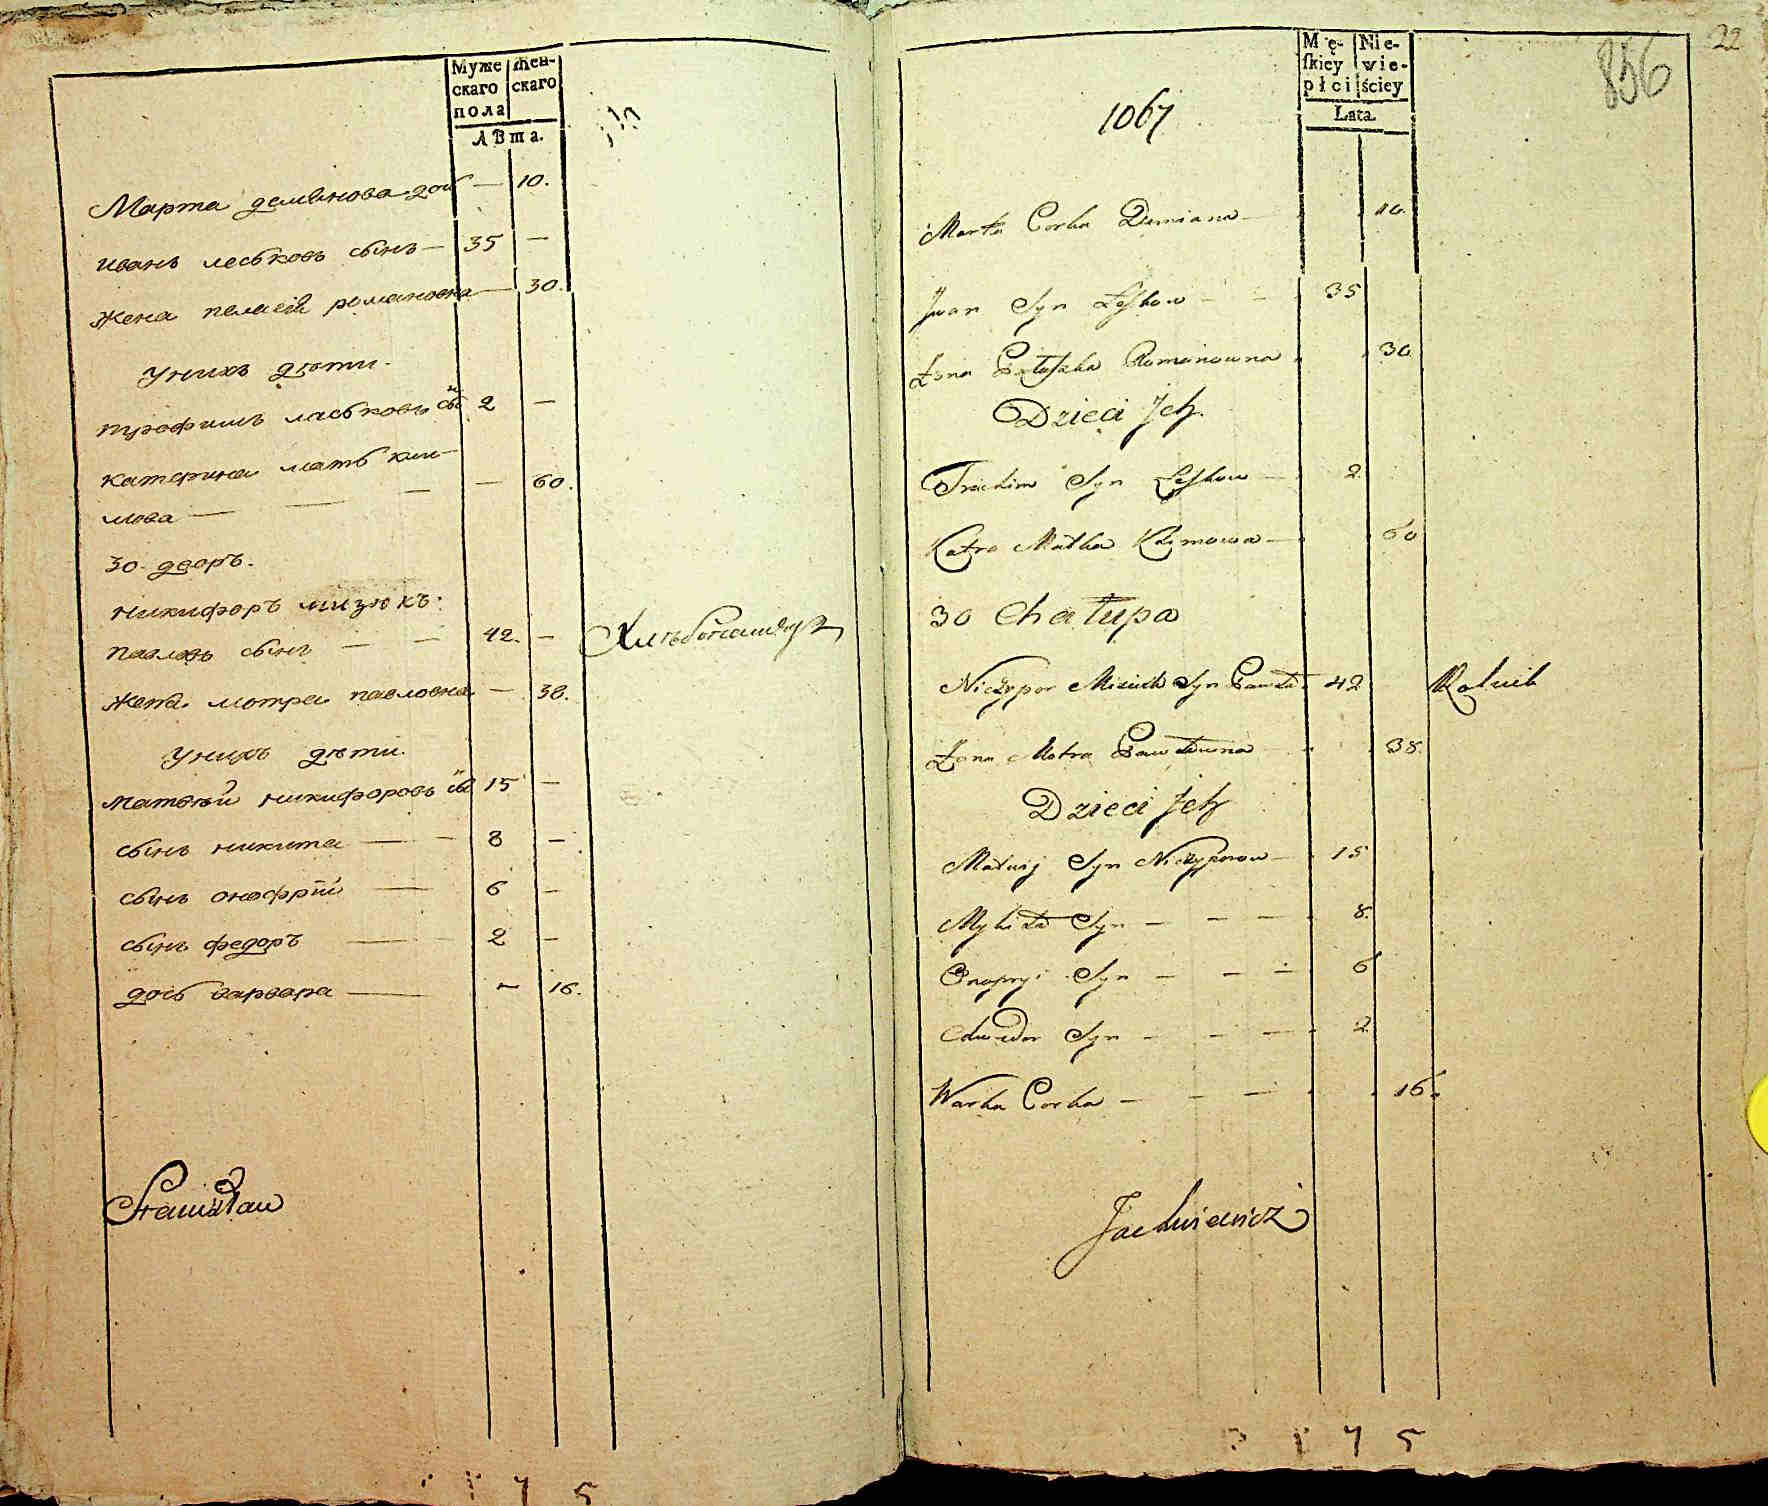 Муже
скаго
пола
Жен-
скаго
Лѣта.
Марта демянова дочь — 10.
иванъ леськовъ сынъ — 35 —
жена пелагея романовна — 30.
у нихъ дети.
трофимъ ласьковъ сынъ 2 —
катерина мать кли-
мова — — — — 60.
30 дворъ.
никифоръ мизюкъ:
павловъ сынъ — — 42. — Хлебопашецъ
жена мотра павловна — 38.
у нихъ дети.
матвей никифоровъ сынъ 15 —
сынъ никита — — 8 —
сынъ онофрій — 6 —
сынъ федоръ — — 2 —
дочь варвара — — 16.
Stanisław
22
856
1067
Mę-
skiey
płci
Nie-
wie-
ściey
Lata.
Marta Corka Demiana — 10.
Jwan Syn Leskow — — 35
Żona Romanowna 30
Dzieci Jch.
Trochim Syn Leskow — 2.
Katra Matka Klimowa — 60
30 Chałupa
Niczypor Misiuk Syn Pawła 42 Rolnik
Żona Motra Pawłowna 38.
Dzieci Jch
Matwij Syn Niczyporow — 15
Mykita Syn — — — 8.
Onopryi Syn — — — 6
Chwedor Syn — — — 2.
Warka Corka — — — 16.
Jackiewicz